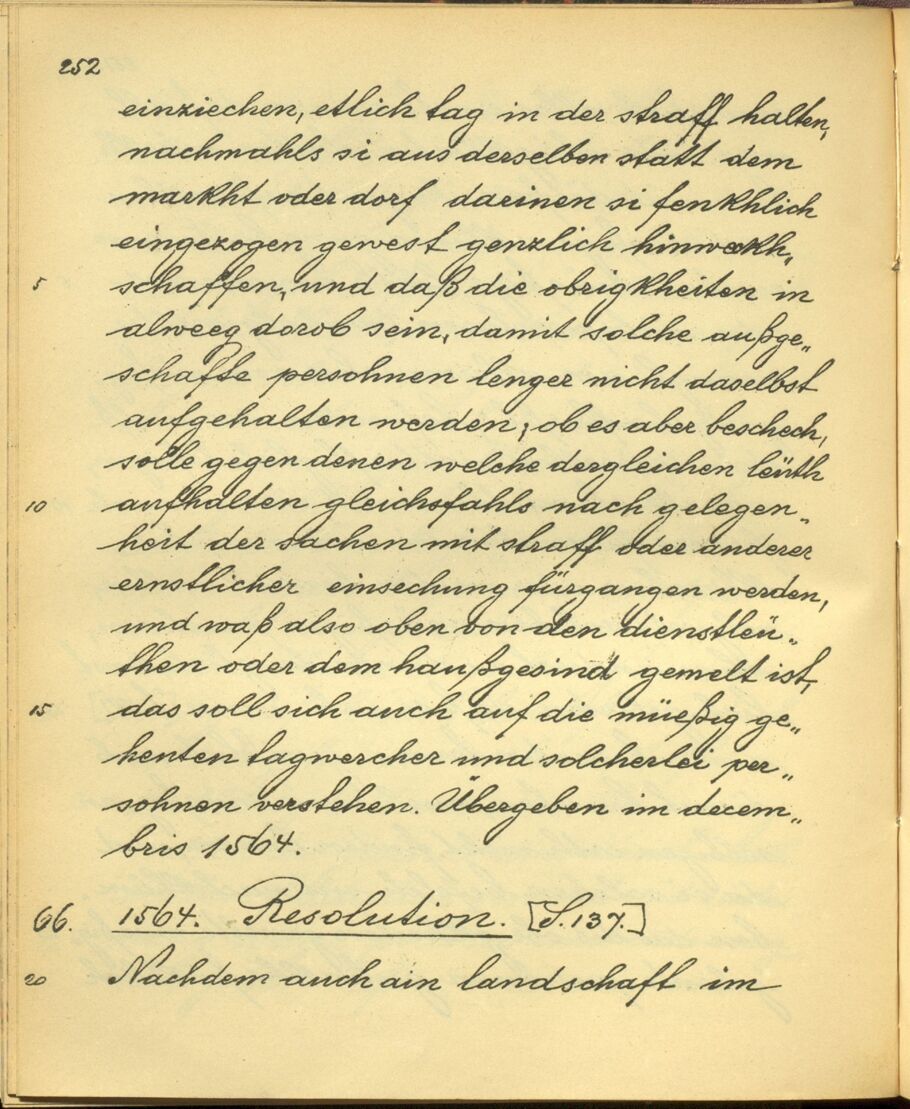 252
einziechen, etlich tag in der straff halten,
nachmahls si aus derselben statt dem
markht oder dorf darinen si fenkhlich
eingezogen gewest genzlich hinwekh„
5 schaffen, und daß die obrigkheiten in
alweeg dorob sein, damit solche außge„
schafte persohnen lenger nicht daselbst
aufgehalten werden; ob es aber beschech,
solle gegen denen welche dergleichen leüth
10 aufhalten gleichsfahls nach gelegen„
heit der sachen mit straff oder anderer
ernstlicher einsechung fürgangen werden,
und waß also oben von den dienstleü„
then oder dem haußgesind gemelt ist,
15 das soll sich auch auf die müeßig ge„
henten tagwercher und solcherlei per„
sohnen verstehen. Übergeben im decem„
bris 1564.
66. 1564. Resolution. [S. 137.]
20 Nachdem auch ain landschaft im